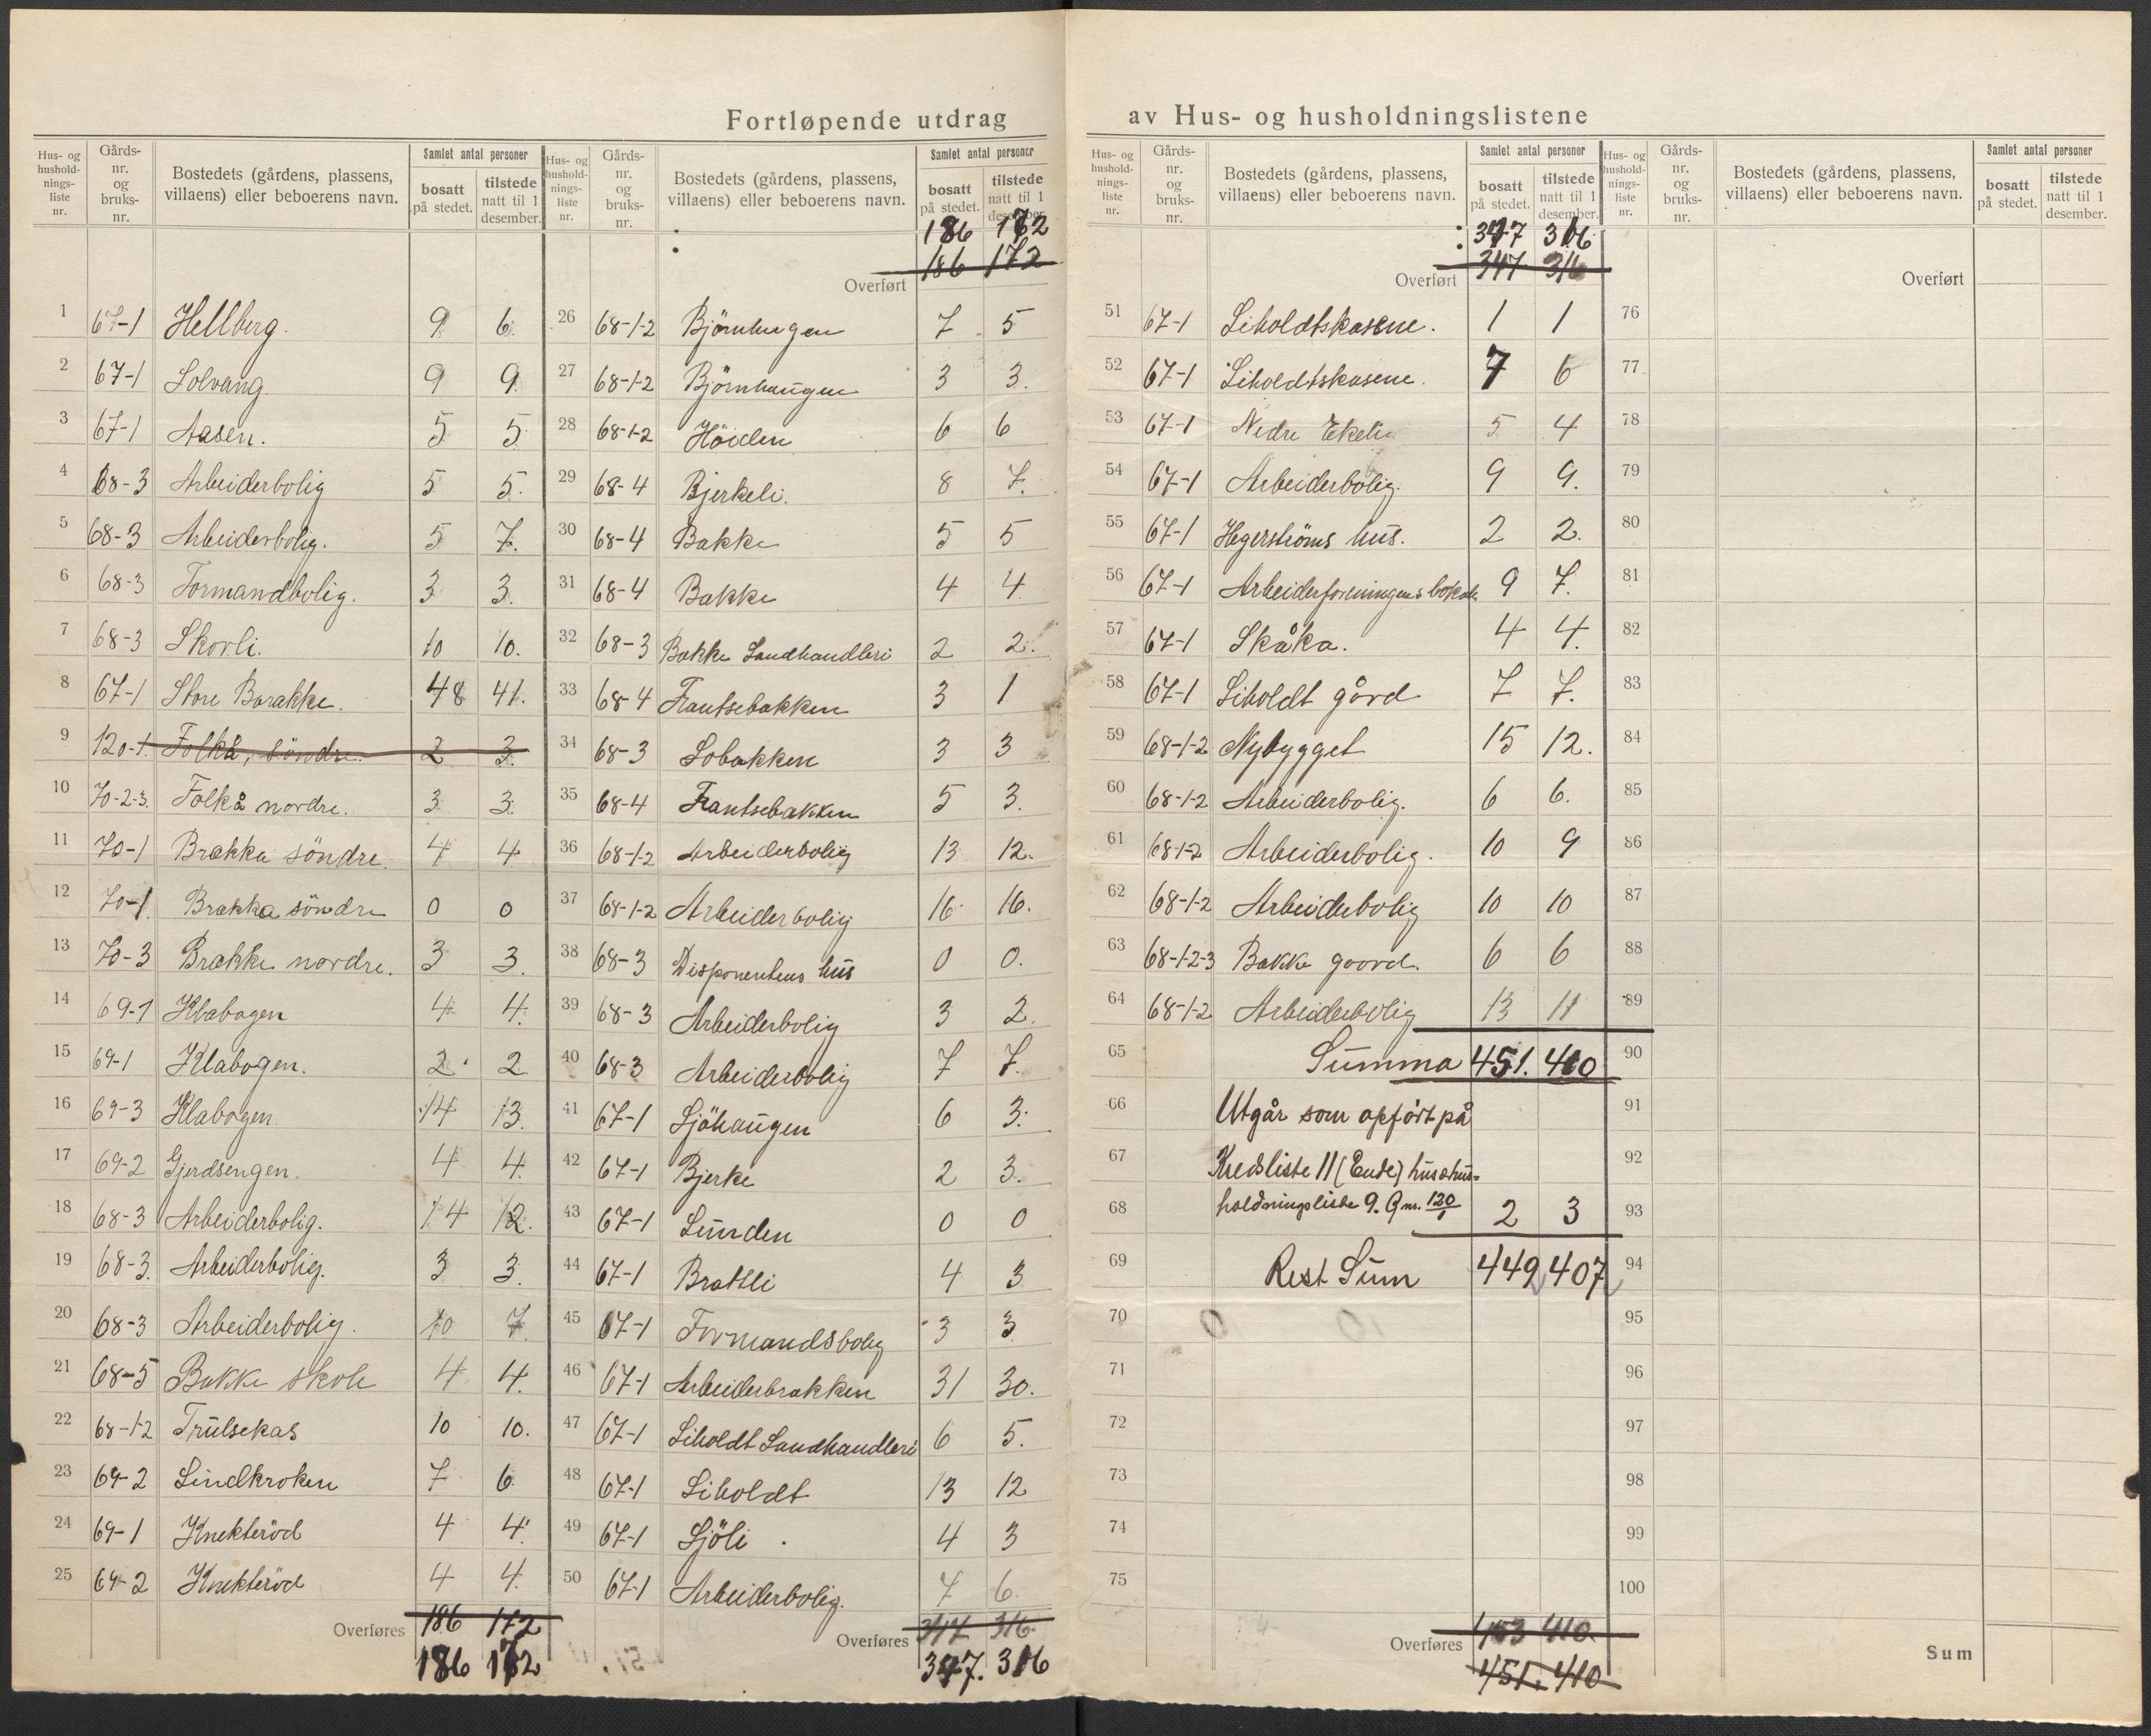 Fortløpende utdrag av Hus- og husholdningslistene
Hus- og hushold- nings- liste nr. Gårds- nr. og bruks- nr. Bostedets (gårdens, plassens, villaens) eller beboerens navn. Samlet antal personer bosatt på stedet. tilstede natt til 1 desember.
1 67-1 Hellberg. 9 6.
2 67-1 Solvang. 9 9.
3 67-1 Aasen. 5 5.
4 68-3 Arbeiderbolig 5 5.
5 68-3 Arbeiderbolig. 5 7.
6 68-3 Formandbolig. 3 3.
7 68-3 Skovli. 10 10.
8 67-1 Store Barakke. 48 41.
9 120-1. Folkå, söndre. 2 3.
10 70-2-3. Folkå nordre. 3 3.
11 70-1 Brækka söndre. 4 4.
12 70-1. Brækka söndre 0 0
13 70-3 Brække nordre. 3 3.
14 69-1 Klabogen 4 4.
15 69-1 Klabogen. 2 2
16 69-3 Klabogen 14 13.
17 69-2 Gjerdsengen. 4 4.
18 68-3 Arbeiderbolig. 14 12.
19 68-3. Arbeiderbolig. 3 3.
20 68-3 Arbeiderbolig. 10 7.
21 68-5 Bakke skole 4 4.
22 68-1-2 Trulsekas 10 10.
23 69-2 Lindkroken 7 6
24 69-1 Knekteröd 4 4.
25 69-2 Knekteröd 4 4.
Overføres 186 172
186 172
Hus- og hushold- nings- liste nr. Gårds- nr. og bruks- nr. Bostedets (gårdens, plassens, villaens) eller beboerens navn. Samlet antal personer bosatt på stedet. tilstede natt til 1 desember.
186 172
Overført 186 172
26 68-1-2 Björnhugen 7 5
27 68-1-2 Björnhaugen 3 3.
28 68-1-2 Höiden 6 6
29 68-4 Bjerkeli. 8 7.
30 68-4 Bakke 5 5
31 68-4 Bakke 4 4
32 68-3 Bakke Landhandleri 2 2.
33 68-4 Frantsebakken 3 1
34 68-3 Lobakken 3 3
35 68-4 Frantsebakken 5 3.
36 68-1-2 Arbeiderbolig 13 12.
37 68-1-2 Arbeiderbolig 16 16.
38 68-3 Disponentens hus 0 0.
39 68-3 Arbeiderbolig 3 2.
40 68-3 Arbeiderbolig 7 7.
41 67-1 Sjöhaugen 6 3.
42 67-1 Bjerke 2 3.
43 67-1 Lunden 0 0
44 67-1 Brattli 4 3
45 67-1 Formandsbolig 3 3
46 67-1 Arbeiderbrakken 31 30.
47 67-1 Liholdt Landhandleri 6 5.
48 67-1 Liholdt 13 12
49 67-1 Sjöli 4 3
50 67-1 Arbeiderbolig. 7 6.
Overføres 347 316.
347. 316
Hus- og hushold- nings- liste nr. Gårds- nr. og bruks- nr. Bostedets (gårdens, plassens, villaens) eller beboerens navn. Samlet antal personer bosatt på stedet. tilstede natt til 1 desember.
347 316
Overført 347 316
51 67-1 Liholdtskasene. 1 1
52 67-1 Liholdtskasene. 7 6
53 67-1 Nedre Ekeli 5 4
54 67-1 Arbeiderbolig. 9 9.
55 67-1 Hegerströms hus. 2 2.
56 67-1 Arbeiderforeningens lokale 9 7.
57 67-1 Skåka. 4 4.
58 67-1 Liholdt gård 7 7.
59 68-1-2 Nybygget 15 12.
60 68-1-2 Arbeiderbolig. 6 6.
61 68-1-2 Arbeiderbolig. 10 9
62 68-1-2 Arbeiderbolig 10 10
63 68-1-2-3 Bakke gaard. 6 6
64 68-1-2 Arbeiderbolig 13 11
65 Summa 451. 410
66 Utgår som opført på
67 Kredsliste 11 (Ende) hus & hus-
68 holdningsliste 9. Gnr. 120/1 2 3
69 Rest Sum 449 407
70
71
72
73
74
75
Overføres 453 410.
451. 410
Hus- og hushold- nings- liste nr. Gårds- nr. og bruks- nr. Bostedets (gårdens, plassens, villaens) eller beboerens navn. Samlet antal personer bosatt på stedet. tilstede natt til 1 desember.
Overført
76
77
78
79
80
81
82
83
84
85
86
87
88
89
90
91
92
93
94
95
96
97
98
99
100
Sum